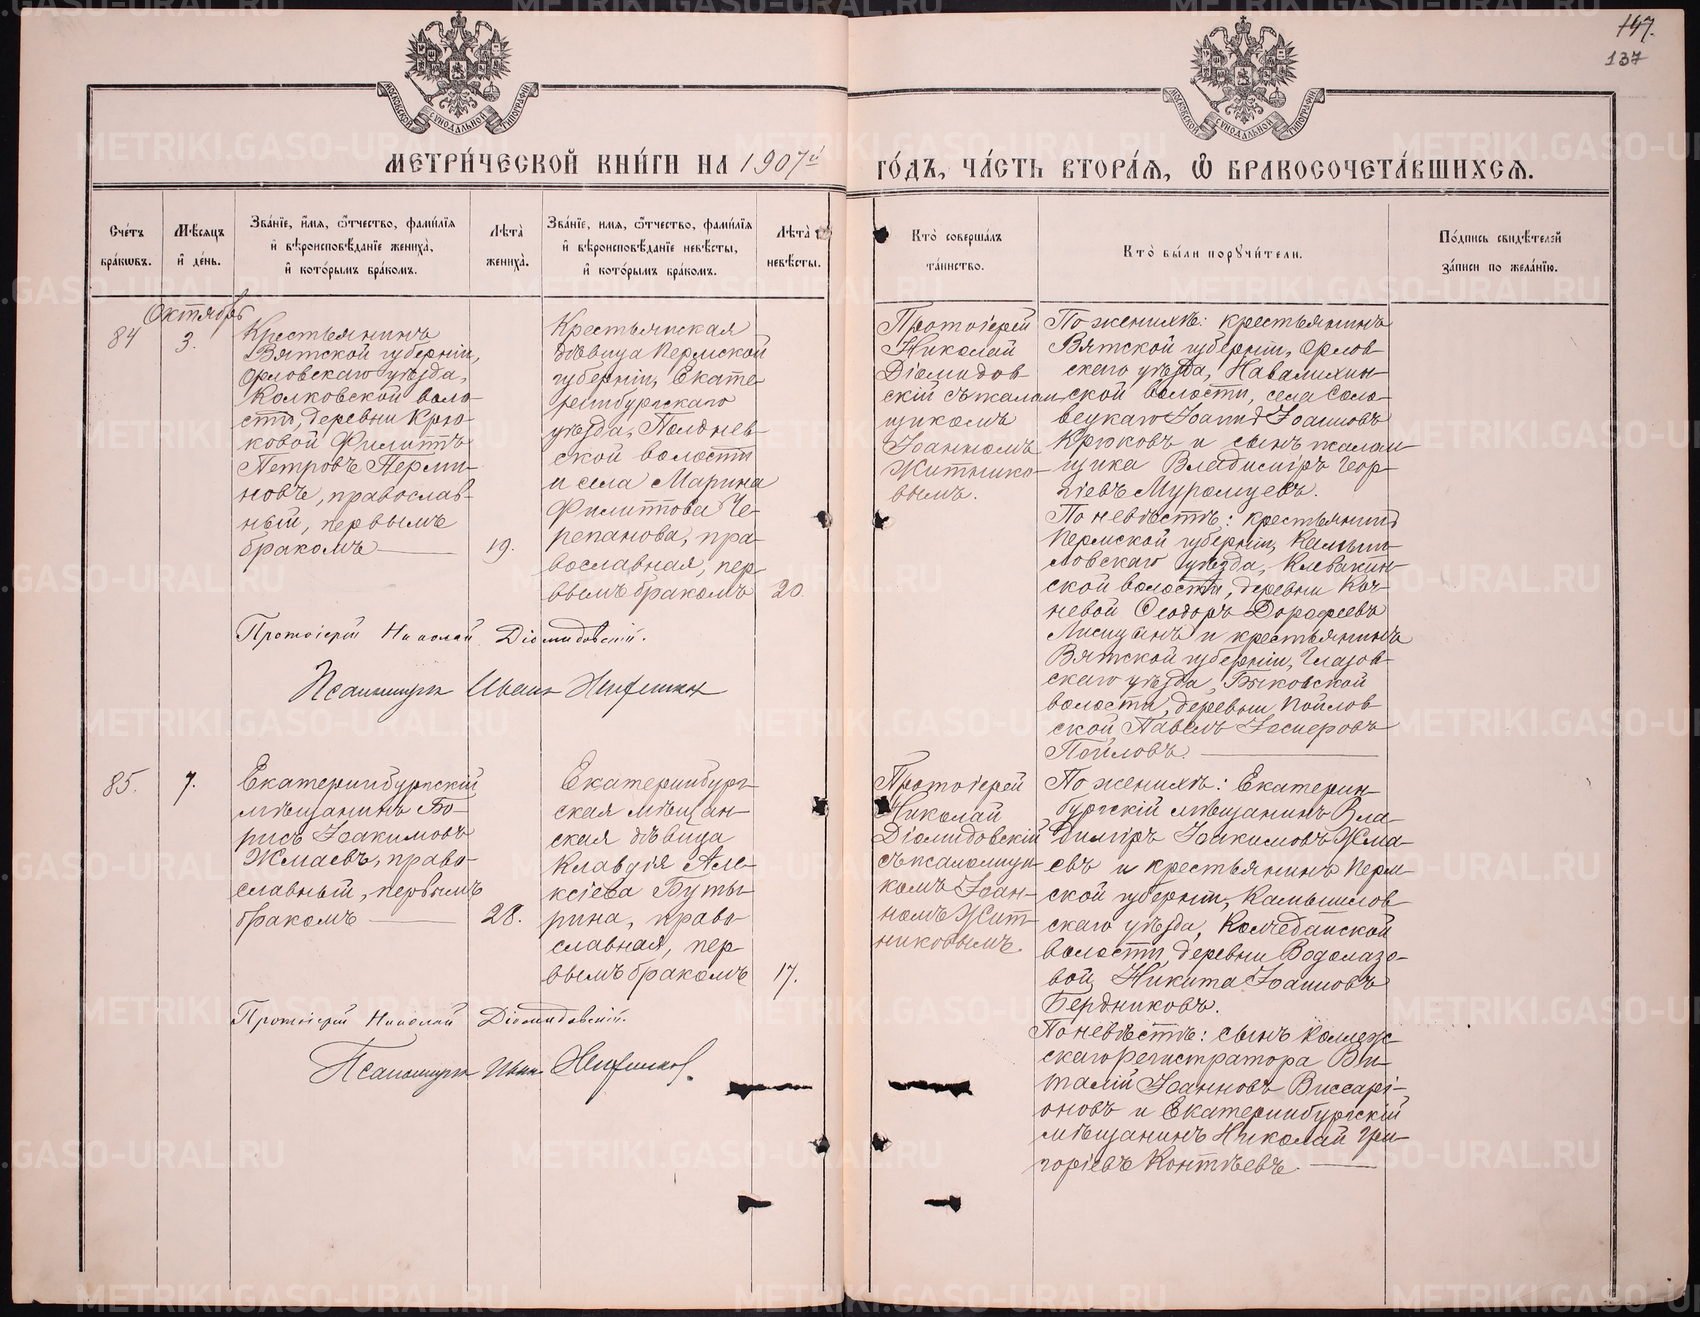 147.
137
МОСКОВСКОЙ СѴНОДАЛЬНОЙ ТИПОГРАФІИ
МОСКОВСКОЙ СѴНОДАЛЬНОЙ ТИПОГРАФІИ
МЕТРИ́ЧЕСКОЙ КНИ́ГИ НА 1907й ГО́ДЪ, ЧА́СТЬ ВТОРА́Я, Ѽ БРАКОСОЧЕТА́ВШИХСЯ.
Сче́тъ
бра́кѡвъ.
Мѣ́сяцъ
и де́нь.
Зва́нїе, и́мя, ѻ҆́тчество, фами́лїя
и вѣроисповѣ́данїе жениха̀,
и кото́рымъ бра́комъ.
Лѣта̀
жениха̀.
Зва́нїе, и́мя, ѻ҆́тчество, фами́лїя
и вѣроисповѣ́данїе невѣ́сты,
и кото́рымъ бра́комъ.
Лѣта̀
невѣ́сты.
Кто̀ соверша́лъ
та́инство.
Кто̀ бы́ли порꙋчи́тели.
По́дпись свидѣ́телей
за́писи по жела́нїю.
84
Октябрь
3.
Крестьянинъ
Вятской губерніи,
Орловскаго уѣзда,
Колковской воло-
сти, деревни Крю-
ковой Филиппъ
Петровъ Перми-
новъ, православ-
ный, первымъ
бракомъ
19.
Крестьянская
дѣвица Пермской
губерніи, Екате-
ринбургскаго
уѣзда, Полднев-
ской волости
и села Марина
Филиппова Че-
репанова, пра-
вославная, пер-
вымъ бракомъ
20.
Протоіерей
Николай
Діомидов-
скій съ псалом-
щикомъ
Іоанномъ
Житнико-
вымъ.
По женихѣ: крестьянинъ
Вятской губерніи, Орлов-
скаго уѣзда, Навалихин-
ской волости, села Соло-
вецкаго Іоаннъ Іоанновъ
Крюковъ и сынъ псалом-
щика Владиміръ Геор-
гіевъ Муромцевъ.
По невѣстѣ: крестьянинъ
Пермской губерніи, Камыш-
ловскаго уѣзда, Клевакин-
ской волости, деревни Коч-
невой Ѳеодоръ Дороѳеевъ
Лисицынъ и крестьянинъ
Вятской губерніи, Глазов-
скаго уѣзда,
волости, деревни Пойлов-
ской Павелъ
Пойловъ.
Протоіерей Николай Діомидовскій.
Псаломщикъ Иванъ
85.
7.
Екатеринбургскій
мѣщанинъ Бо-
рисъ Іоакимовъ
Жмаевъ, право-
славный, первымъ
бракомъ
28.
Екатеринбург-
ская мѣщан-
ская дѣвица
Клавдія Але-
ксіева Буты-
рина, право-
славная, пер-
вымъ бракомъ
17.
Протоіерей
Николай
Діомидовскій
съ псаломщи-
комъ Іоан-
номъ Жит-
никовымъ.
По женихѣ: Екатерин-
бургскій мѣщанинъ Вла-
диміръ Іоакимовъ Жма-
евъ и крестьянинъ Перм-
ской губерніи, Камышлов-
скаго уѣзда, Колчеданской
волости, деревни Водолазо-
вой Никита Іоанновъ
Бердниковъ.
По невѣстѣ: сынъ коллеж-
скаго регистратора Ви-
талій Іоанновъ Виссарі-
оновъ и Екатеринбургскій
мѣщанинъ Николай Гри-
горіевъ Контѣевъ.
Протоіерей Николай Діомидовскій.
Псаломщикъ Иванъ
METRIKI.GASO-URAL.RU